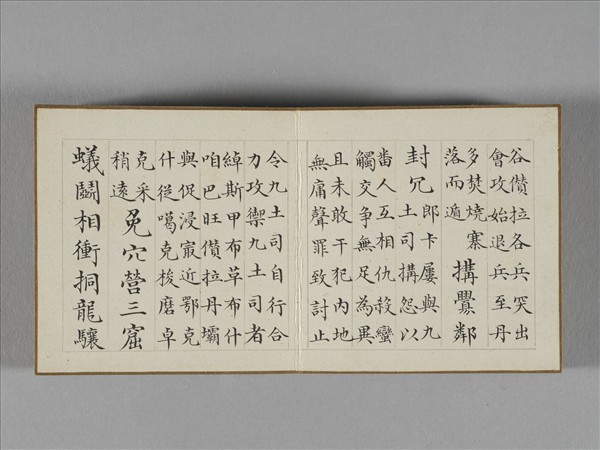 谷儹拉各兵突出
會攻始退兵至丹
多焚燒寨
落而遁
搆釁鄰
封冗
郎卡屢與九
土司搆怨以
畨人互相仇殺蠻
觸交争無足為異
且未敢干犯內地
無庸聲罪致討止
令九土司自行合
力攻禦九土司者
綽斯甲布草布什
咱巴旺儹拉丹壩
與促浸㝡近鄂克
什從噶克梭磨卓
克采
稍遠
兔穴營三窟
蟻鬭相衝挏龍驤